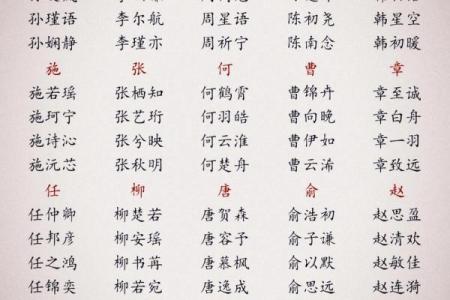 孙瑾语 李尔航 周星语 陈初尧 韩星空
孙娴静 李瑾亦 周祈宁 陈南念 韩初暖
施 张 何 曹 章
施若瑶 张栖知 何鹤霄 曹锦卉 章至诚
施珂宁 张艺珩 何羽皓 曹向晚 章白舟
施诗沁 张兮映 何云淮 曹伊如 章一羽
施沅芯 张秋明 何楚舟 曹云浠 章致远
任 柳 唐 俞 赵
任仲卿 柳楚若 唐贺森 俞浩初 赵思盈
任邦彦 柳安瑶 唐容予 俞子谦 赵清欢
任之鸿 柳书苒 唐慕枫 俞以默 赵敏佳
任锦奕 柳若宛 唐逸成 俞思远 赵连漪